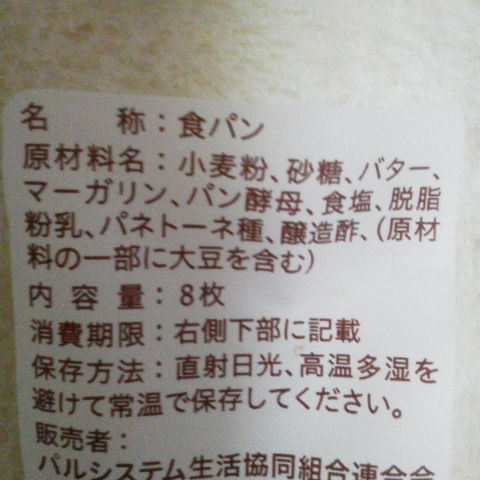 名　　称：食パン
原材料名：小麦粉、砂糖、バター、
マーガリン、パン酵母、食塩、脱脂
粉乳、パネトーネ種、醸造酢、(原材
料の一部に大豆を含む)
内 容 量：8枚
消費期限：右側下部に記載
保存方法：直射日光、高温多湿を
避けて常温で保存してください。
販売者：
パルシステム生活協同組合連合会